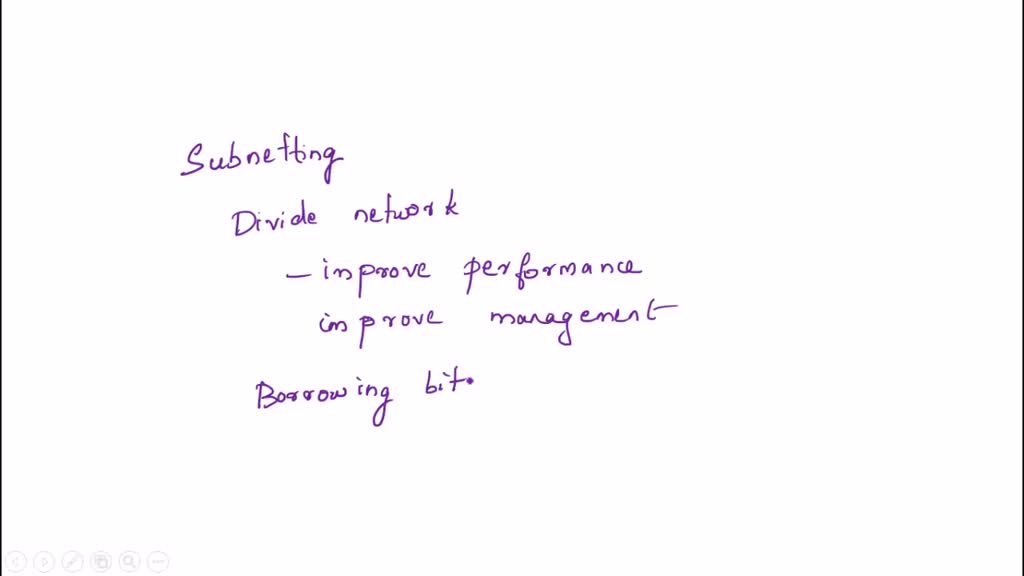 Subnetting
Divide network
- improve performance
improve management
Borrowing bit